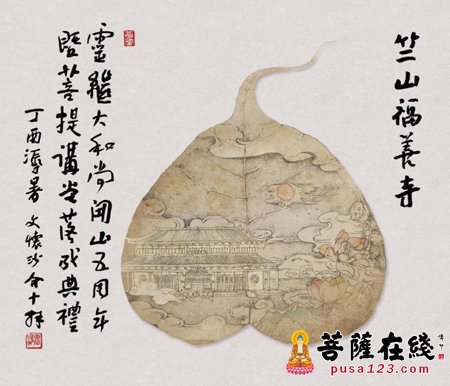 竺山福善寺
靈繼大和尚開山五周年
暨菩提講堂落成典禮
丁酉溽暑 文懷沙合十拜
菩薩在綫
pusa123.com